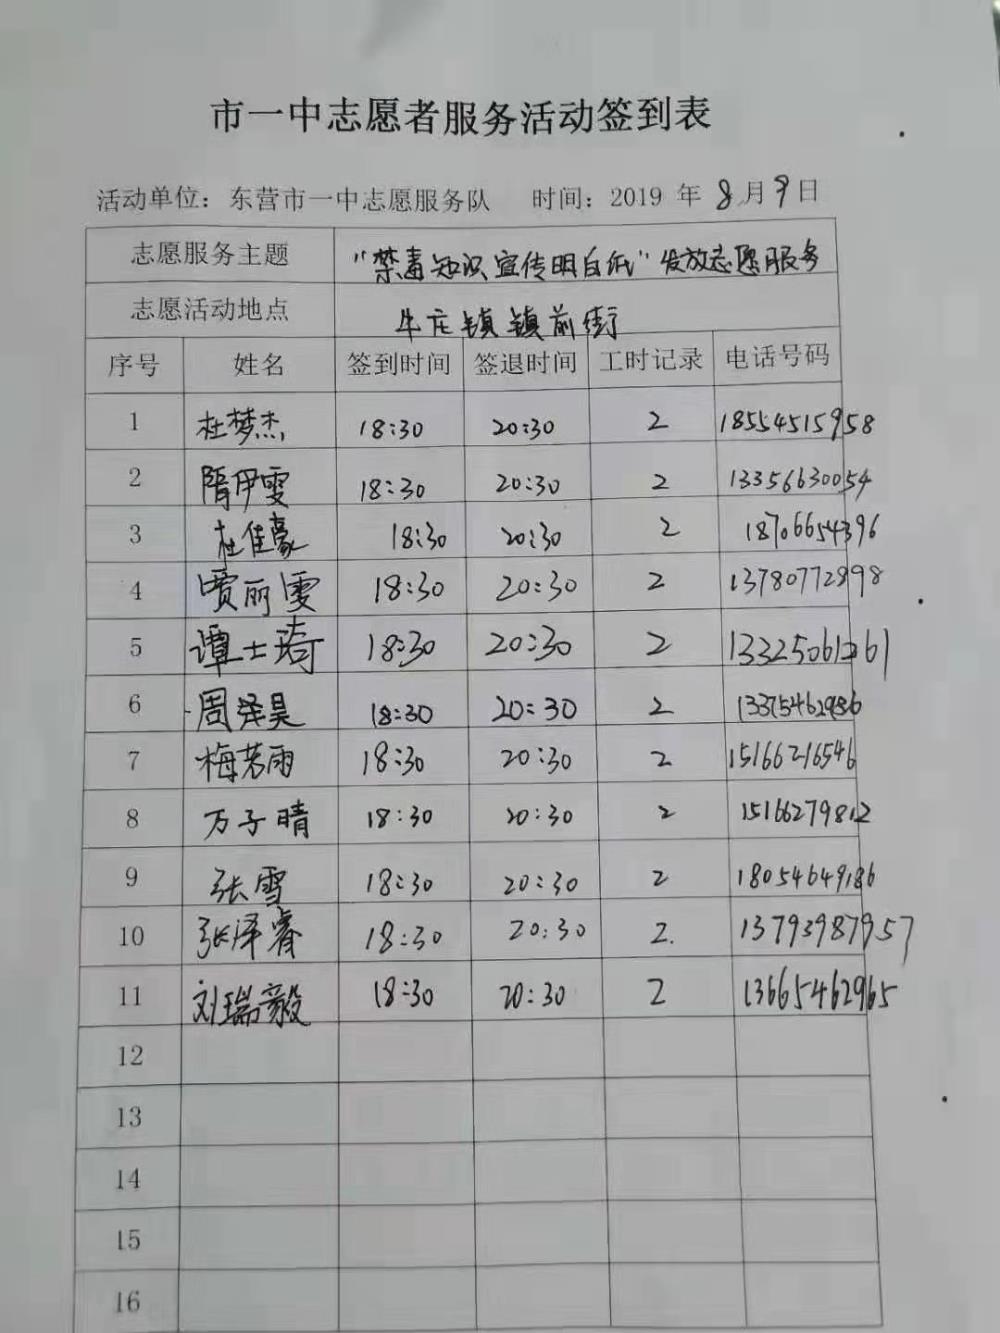 市一中志愿者服务活动签到表
活动单位：东营市一中志愿服务队 时间：2019 年 8月9日
志愿服务主题 “禁毒知识宣传明白纸”发放志愿服务
志愿活动地点 牛庄镇镇前街
序号 姓名 签到时间 签退时间 工时记录 电话号码
1 杜梦杰 18:30 20:30 2 18554515958
2 隋伊雯 18:30 20:30 2 13356630054
3 杜佳豪 18:30 20:30 2 18706654396
4 贾丽雯 18:30 20:30 2 13780772898
5 谭士琦 18:30 20:30 2 13325061261
6 周泽昊 18:30 20:30 2 13375462986
7 梅若雨 18:30 20:30 2 15166216546
8 万子晴 18:30 20:30 2 15166279812
9 张雪 18:30 20:30 2 18054649186
10 张泽睿 18:30 20:30 2. 13793987957
11 刘瑞毅 18:30 20:30 2 13665462965
12
13
14
15
16